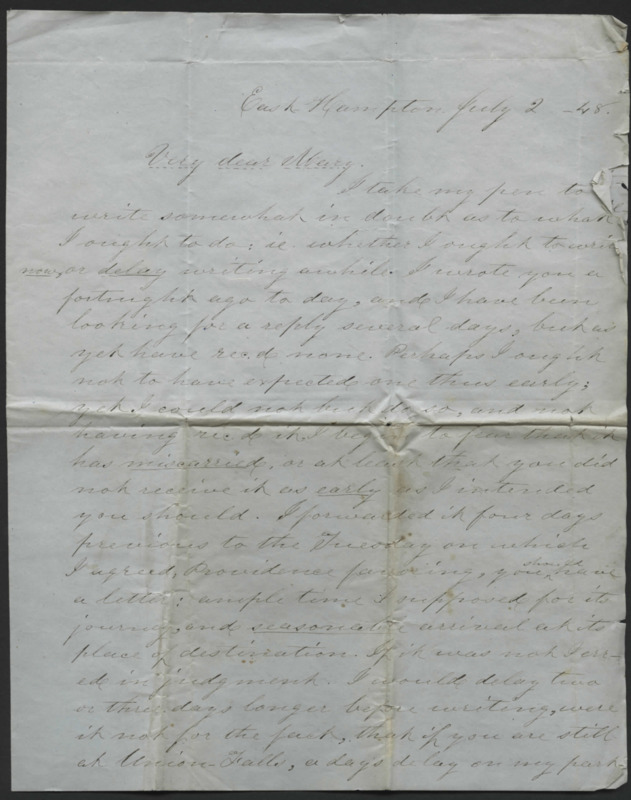 East Hampton July 2 -48.
Very dear Mary.
I take my pen to
write somewhat in doubt as to what
I ought to do; ie. whether I ought to write
now, or delay writing awhile. I wrote you a
fortnight ago to day, and I have been
looking for a reply several days, but as
yet have rec.d none. Perhaps I ought
not to have expected one thus early;
yet I could not but do so, and not
having rec.d it I begin to fear that it
has miscarried, or at least that you did
not receive it as early as I intended
you should. I forwarded it four days
previous to the Tuesday on which
I agreed, Providence favoring, you should have
a letter; ample time I supposed for its
journey, and seasonable arrival at its
place of destination. If it was not I err-
ed in judgment. I would delay two
or three days longer before writing, were
it not for the fact, that if you are still
at Union-Falls, a days delay on my part